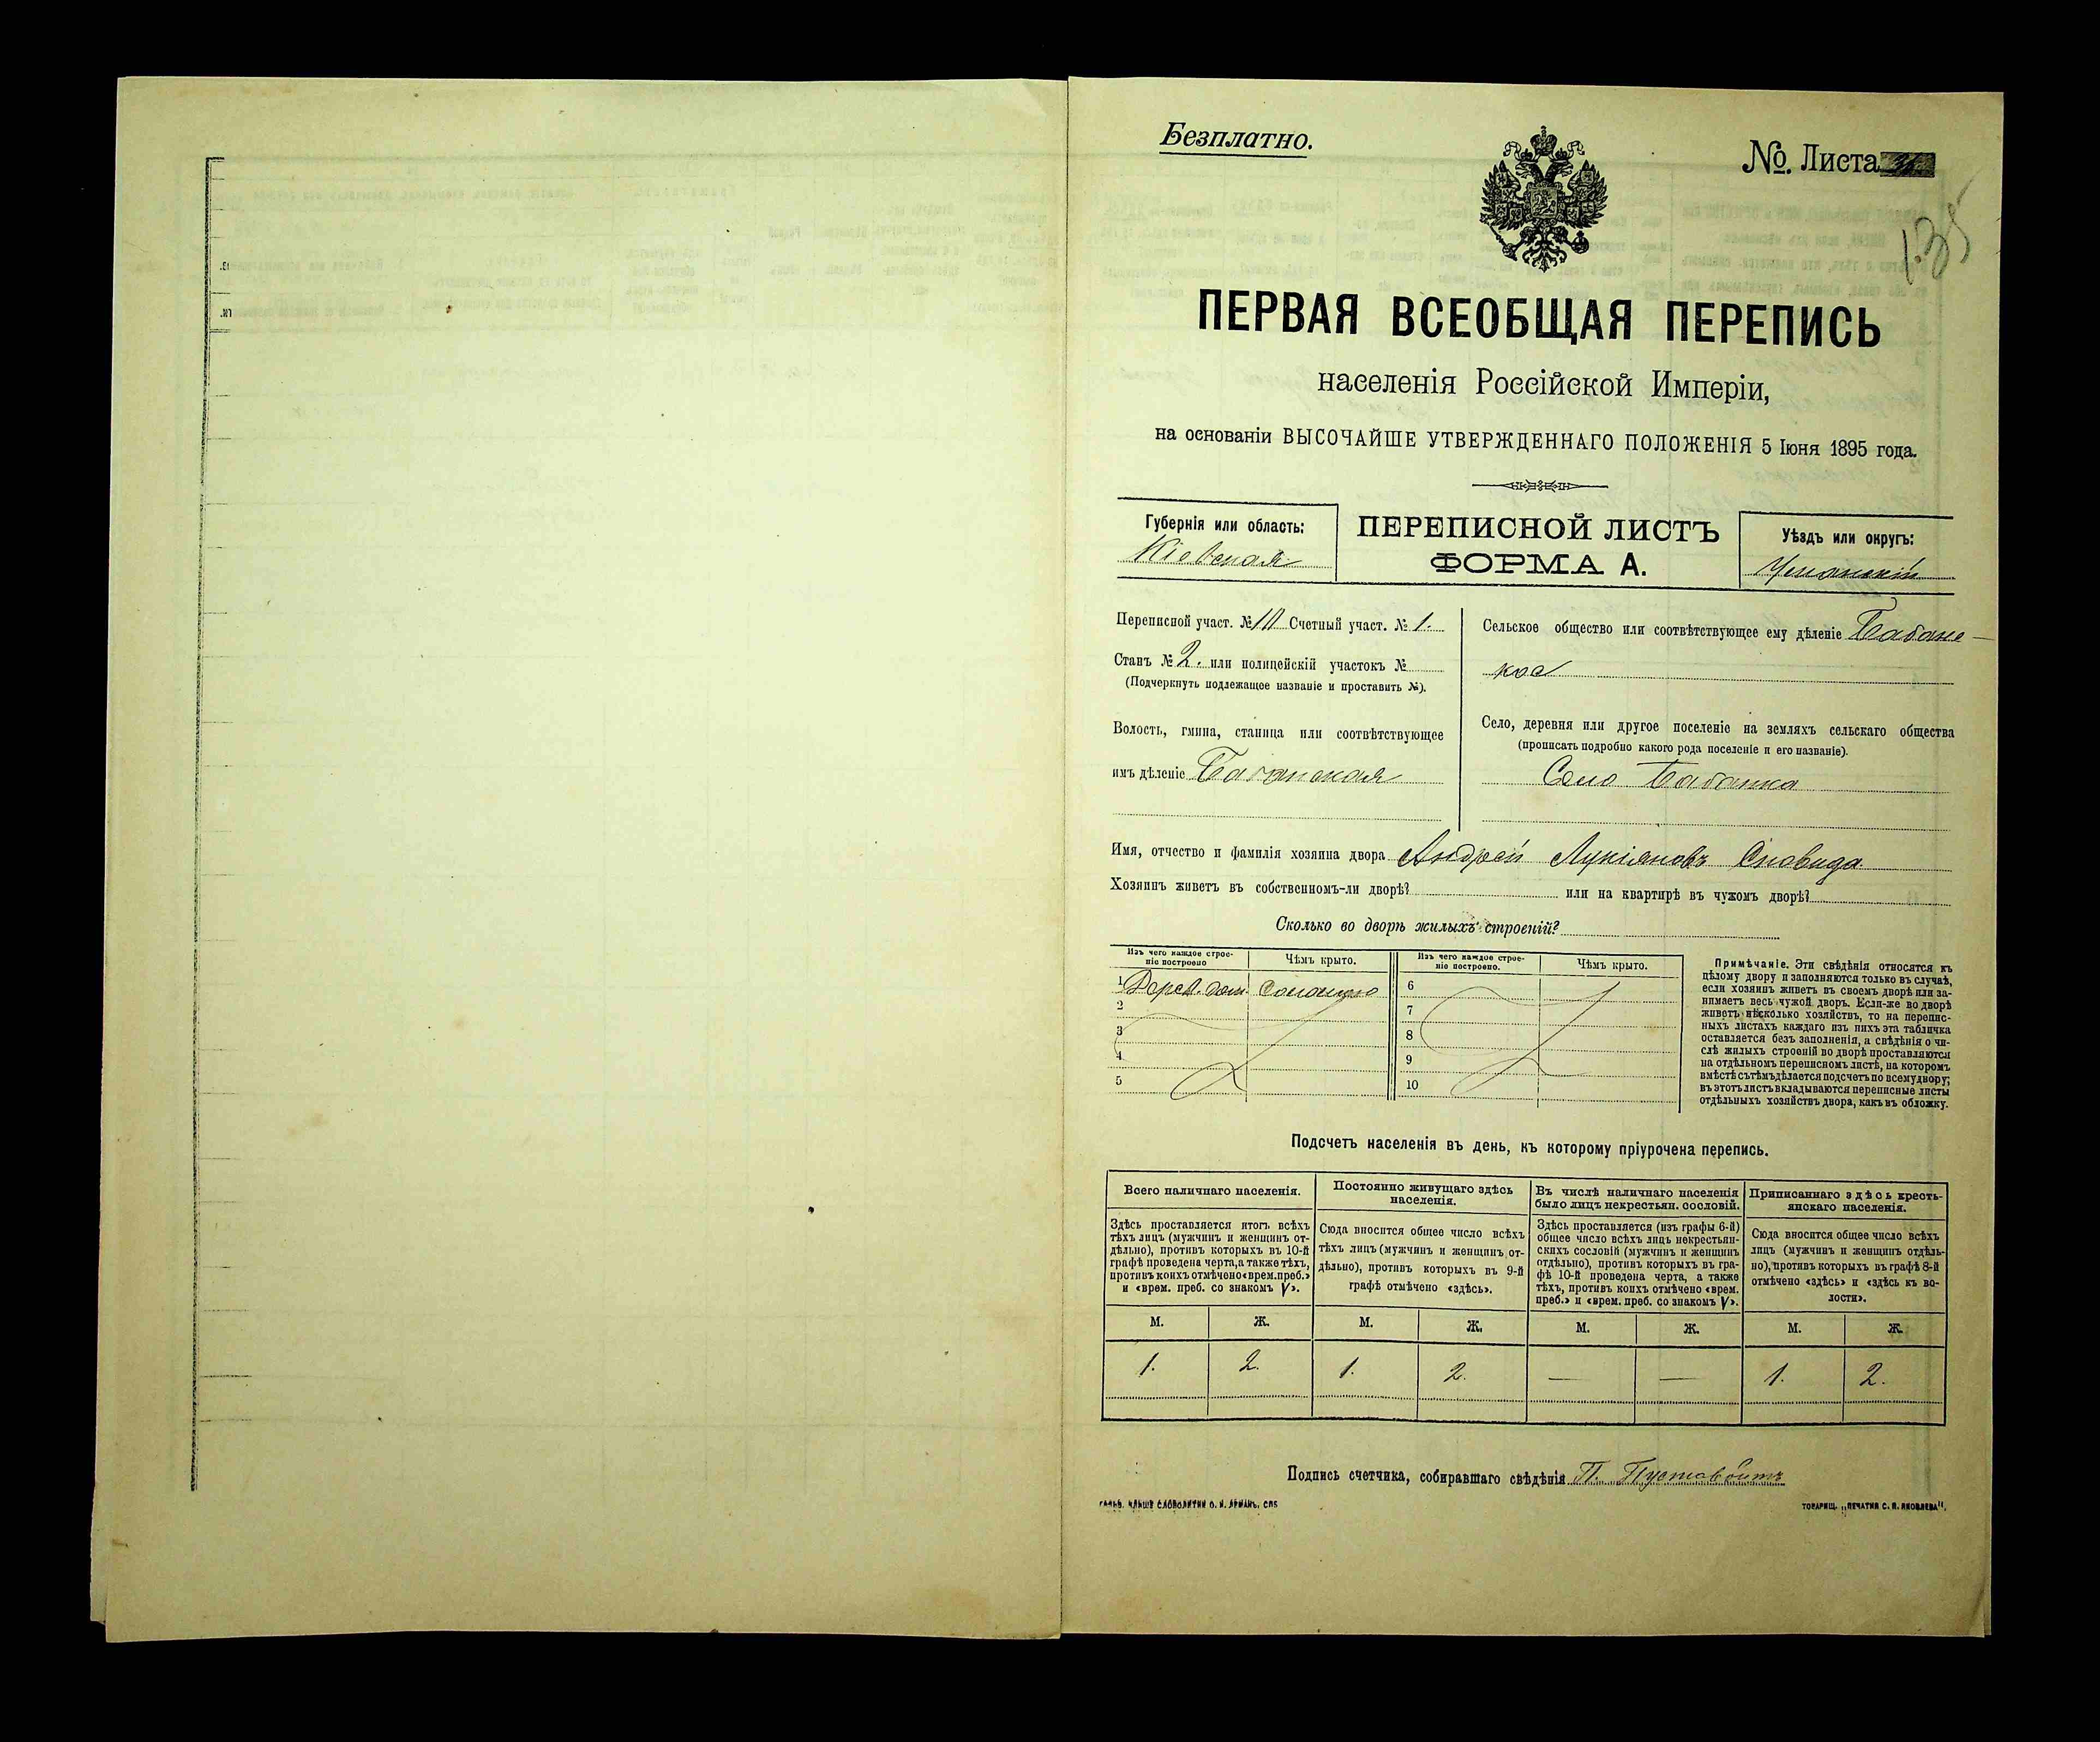 Безплатно.
№. Листа
135
ПЕРВАЯ ВСЕОБЩАЯ ПЕРЕПИСЬ
населенія Россійской Имперіи,
на основаніи ВЫСОЧАЙШЕ УТВЕРЖДЕННАГО ПОЛОЖЕНІЯ 5 Іюня 1895 года.
Губернія или область:
Кіевская
ПЕРЕПИСНОЙ ЛИСТЪ
ФОРМА А.
Уѣздъ или округъ:
Уманскій
Переписной участ. № Счетный участ. № 1.
Станъ № 2. или полицейскій участокъ №
(Подчеркнуть подлежащее названіе и проставить №).
Волость, гмина, станица или соотвѣтствующее
имъ дѣленіе Бабанская
Сельское общество или соотвѣтствующее ему дѣленіе Бабанс-
кое
Село, деревня или другое поселеніе на земляхъ сельскаго общества
(прописать подробно какого рода поселеніе и его названіе).
Село Бабанка
Имя, отчество и фамилія хозяина двора Андрей Лукіяновъ Сновида
Хозяинъ живетъ въ собственномъ-ли дворѣ? или на квартирѣ въ чужомъ дворѣ?
Сколько во дворѣ жилыхъ строеній?
Изъ чего каждое строе-
ніе построено
Чѣмъ крыто.
Изъ чего каждое строе-
ніе построено.
Чѣмъ крыто.
1 Дерев. дом. Соломою
2
3
4
5
6
7
8
9
10
Примѣчаніе. Эти свѣдѣнія относятся къ
цѣлому двору и заполняются только въ случаѣ,
если хозяинъ живетъ въ своемъ дворѣ или за-
нимаетъ весь чужой дворъ. Если-же во дворѣ
живетъ нѣсколько хозяйствъ, то на перепис-
ныхъ листахъ каждаго изъ нихъ эта табличка
оставляется безъ заполненія, а свѣдѣнія о чи-
слѣ жилыхъ строеній во дворѣ проставляются
на отдѣльномъ переписномъ листѣ, на которомъ
вмѣстѣ съ тѣмъ дѣлается подсчетъ по всему двору;
въ этотъ листъ вкладываются переписные листы
отдѣльныхъ хозяйствъ двора, какъ въ обложку.
Подсчетъ населенія въ день, къ которому пріурочена перепись.
Всего наличнаго населенія.
Здѣсь проставляется итогъ всѣхъ
тѣхъ лицъ (мужчинъ и женщинъ от-
дѣльно), противъ которыхъ въ 10-й
графѣ проведена черта, а также тѣхъ,
противъ коихъ отмѣчено «врем. преб.»
и «врем. преб. со знакомъ V».
Постоянно живущаго здѣсь
населенія.
Сюда вносится общее число всѣхъ
тѣхъ лицъ (мужчинъ и женщинъ от-
дѣльно), противъ которыхъ въ 9-й
графѣ отмѣчено «здѣсь».
Въ числѣ наличнаго населенія
было лицъ некрестьян. сословій.
Здѣсь проставляется (изъ графы 6-й)
общее число всѣхъ лицъ некрестьян-
скихъ сословій (мужчинъ и женщинъ
отдѣльно), противъ которыхъ въ гра-
фѣ 10-й проведена черта, а также
тѣхъ, противъ коихъ отмѣчено «врем.
преб.» и «врем. преб. со знакомъ V».
Приписаннаго здѣсь кресть-
янскаго населенія.
Сюда вносится общее число всѣхъ
лицъ (мужчинъ и женщинъ отдѣль-
но), противъ которыхъ въ графѣ 8-й
отмѣчено «здѣсь» и «здѣсь къ во-
лости».
М. Ж. М. Ж. М. Ж. М. Ж.
1. 2. 1. 2. — — 1. 2.
Подпись счетчика, собиравшаго свѣдѣнія П. Пустовойтъ
ТОВАРИЩ. „ПЕЧАТНЯ С. П. ЯКОВЛЕВА".